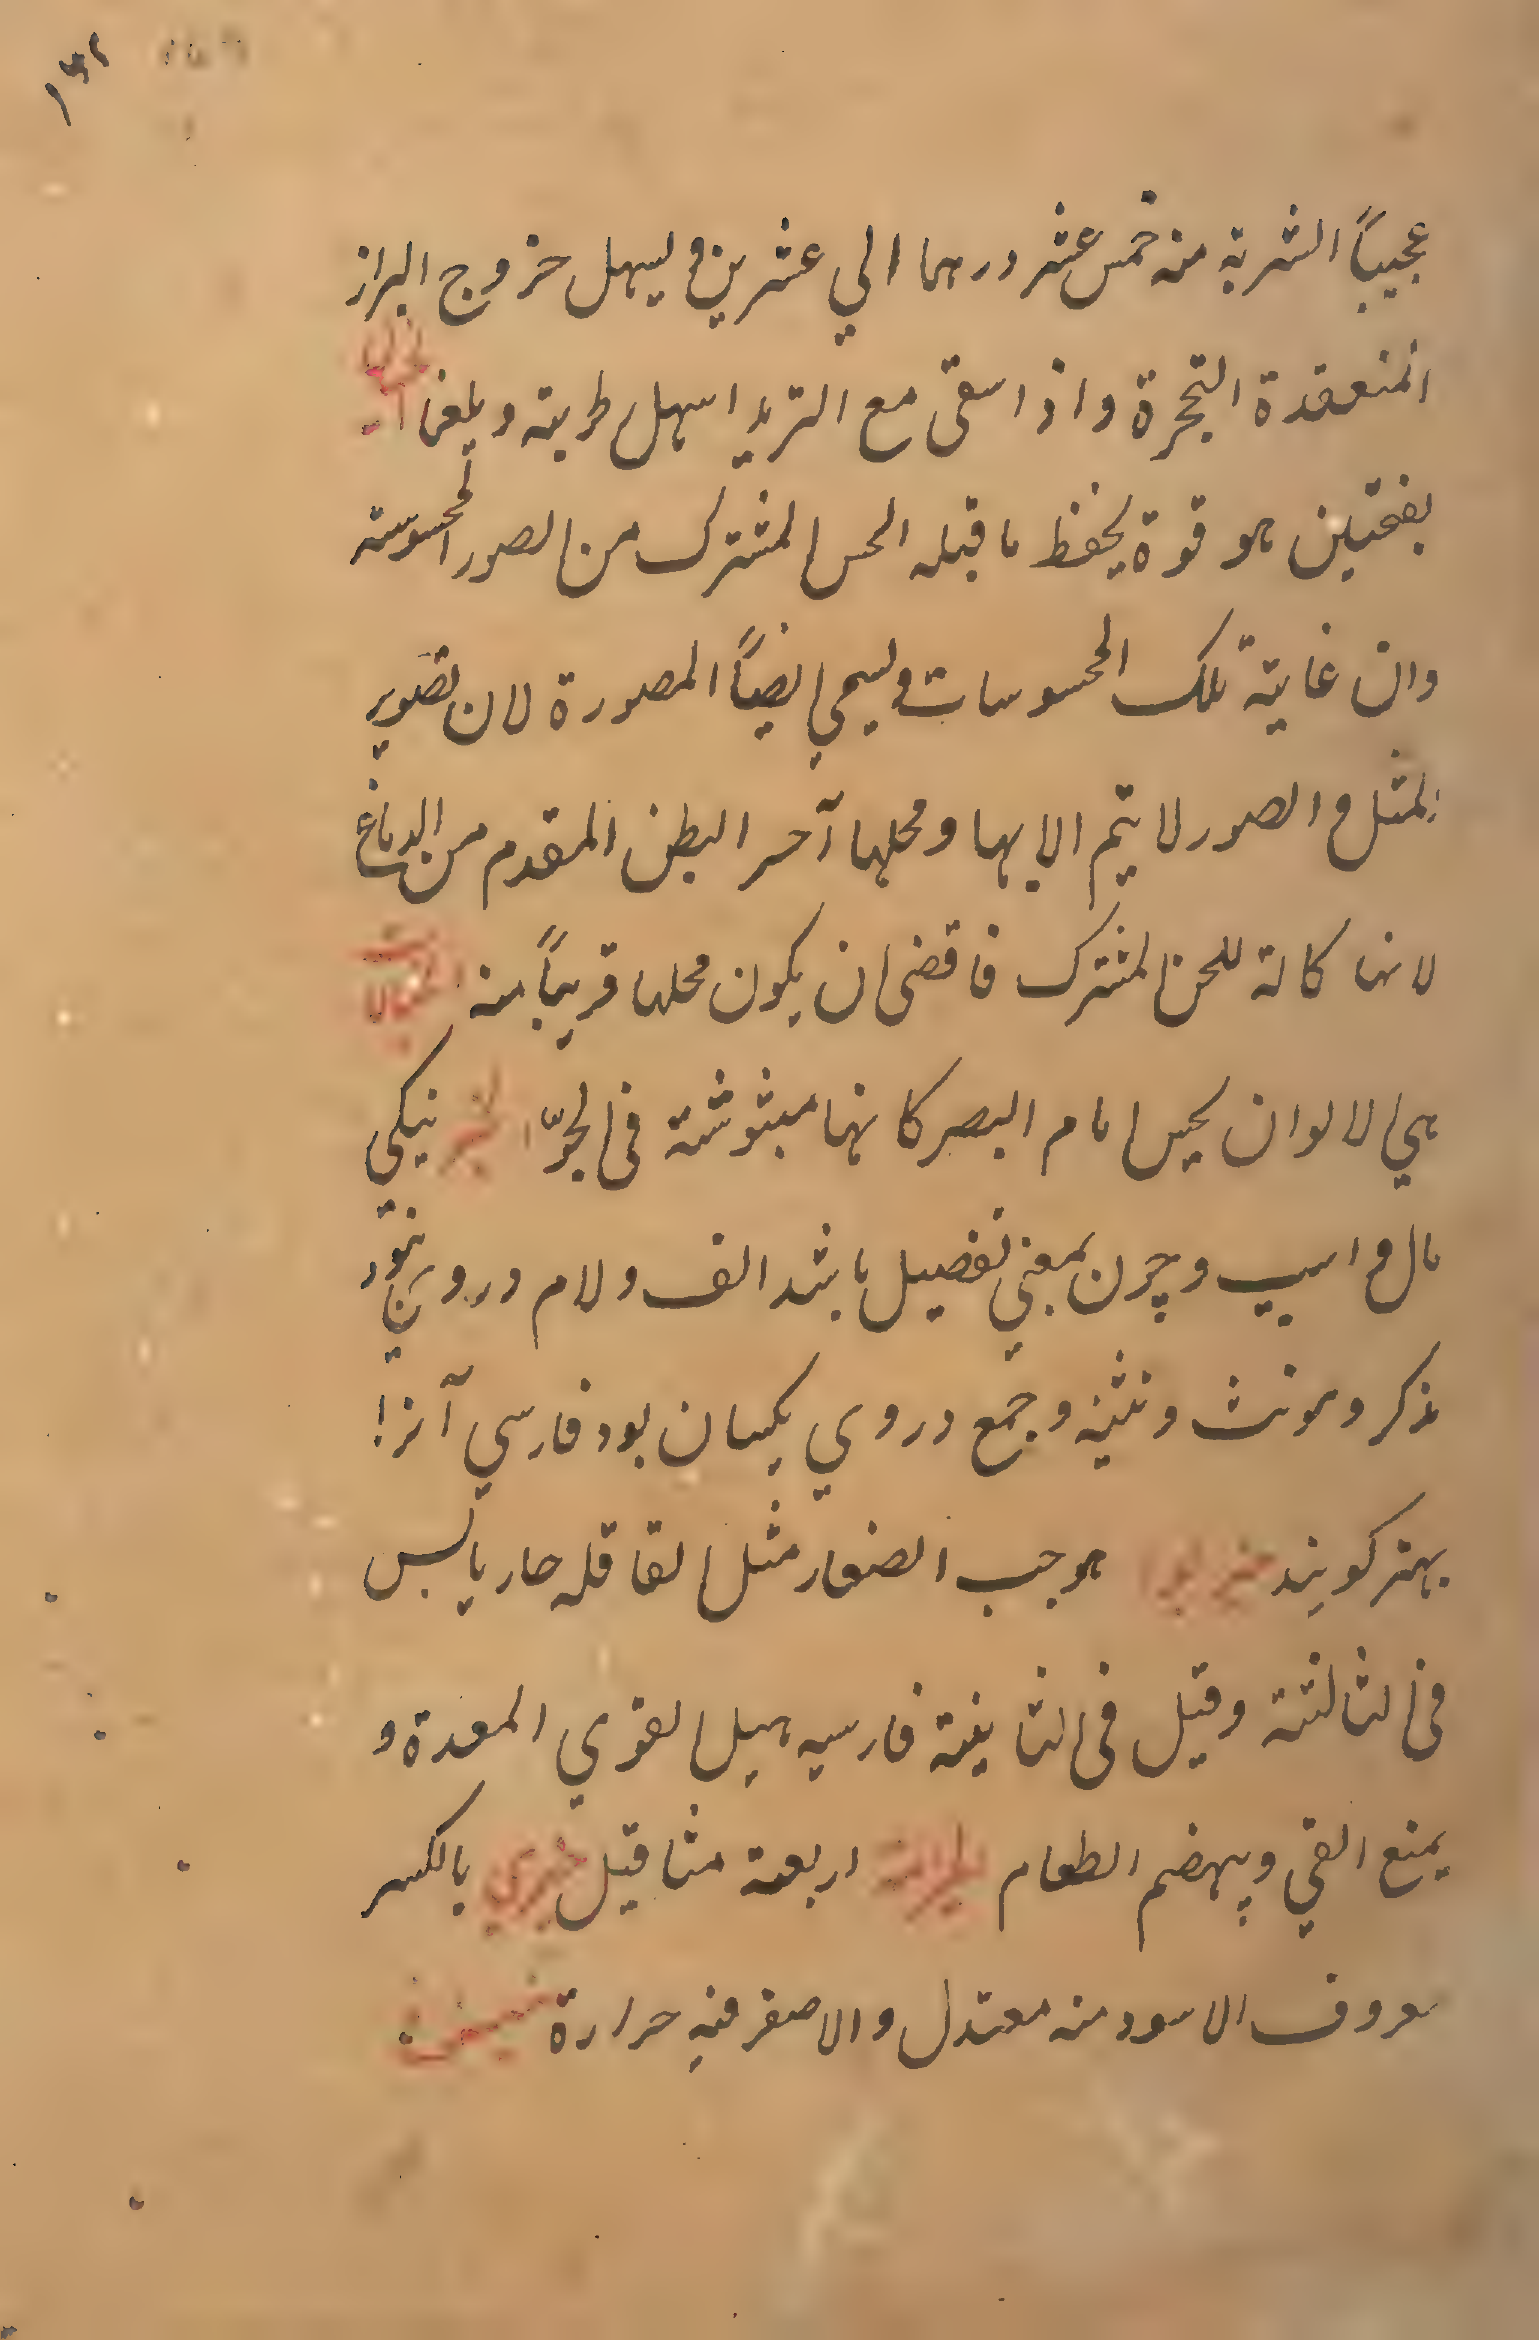 ۱۴۲
عجیباً الشربة منه خمس عشر درهما الي عشرين و ليسهل خروج البراز
المنعقدة التجرة واذا سقى مع التربد اسهل طربته وبلغما
بفتحتين هو قوة يحفظ ما قبله الحس المشترك من الصور المحسوسته
وان غابته تلك المحسوسات و ليسمي ايضاً المصورة لان تصوير
المثل و الصور لا يتم الا بها ومحلها آخر البطن المقدم من الدماغ
لانها كالة للحس المشترك فاقضى ان يكون محلها قريباً منه
هي الالوان يحس امام البصر كانها مبثوثة فى الجوّ الخير نيكي
مال و اسپ و چون بمعني تفضيل باشد الف ولام در وي نبود
مذكر و مونث و تثنيه و جمع در وي يكسان بود فارسي آنرا
بهتر كويند خير بوا هو حب الصغار مثل القاقله حار يابس
فى الثالثته وقيل فى الثانية فارسيه هيل القوي المعدة و
يمنع القي ويهضم الطعام اربعة مثاقيل خيري بالكسر
معروف الاسود منه معتدل والاصفر فيه حرارة